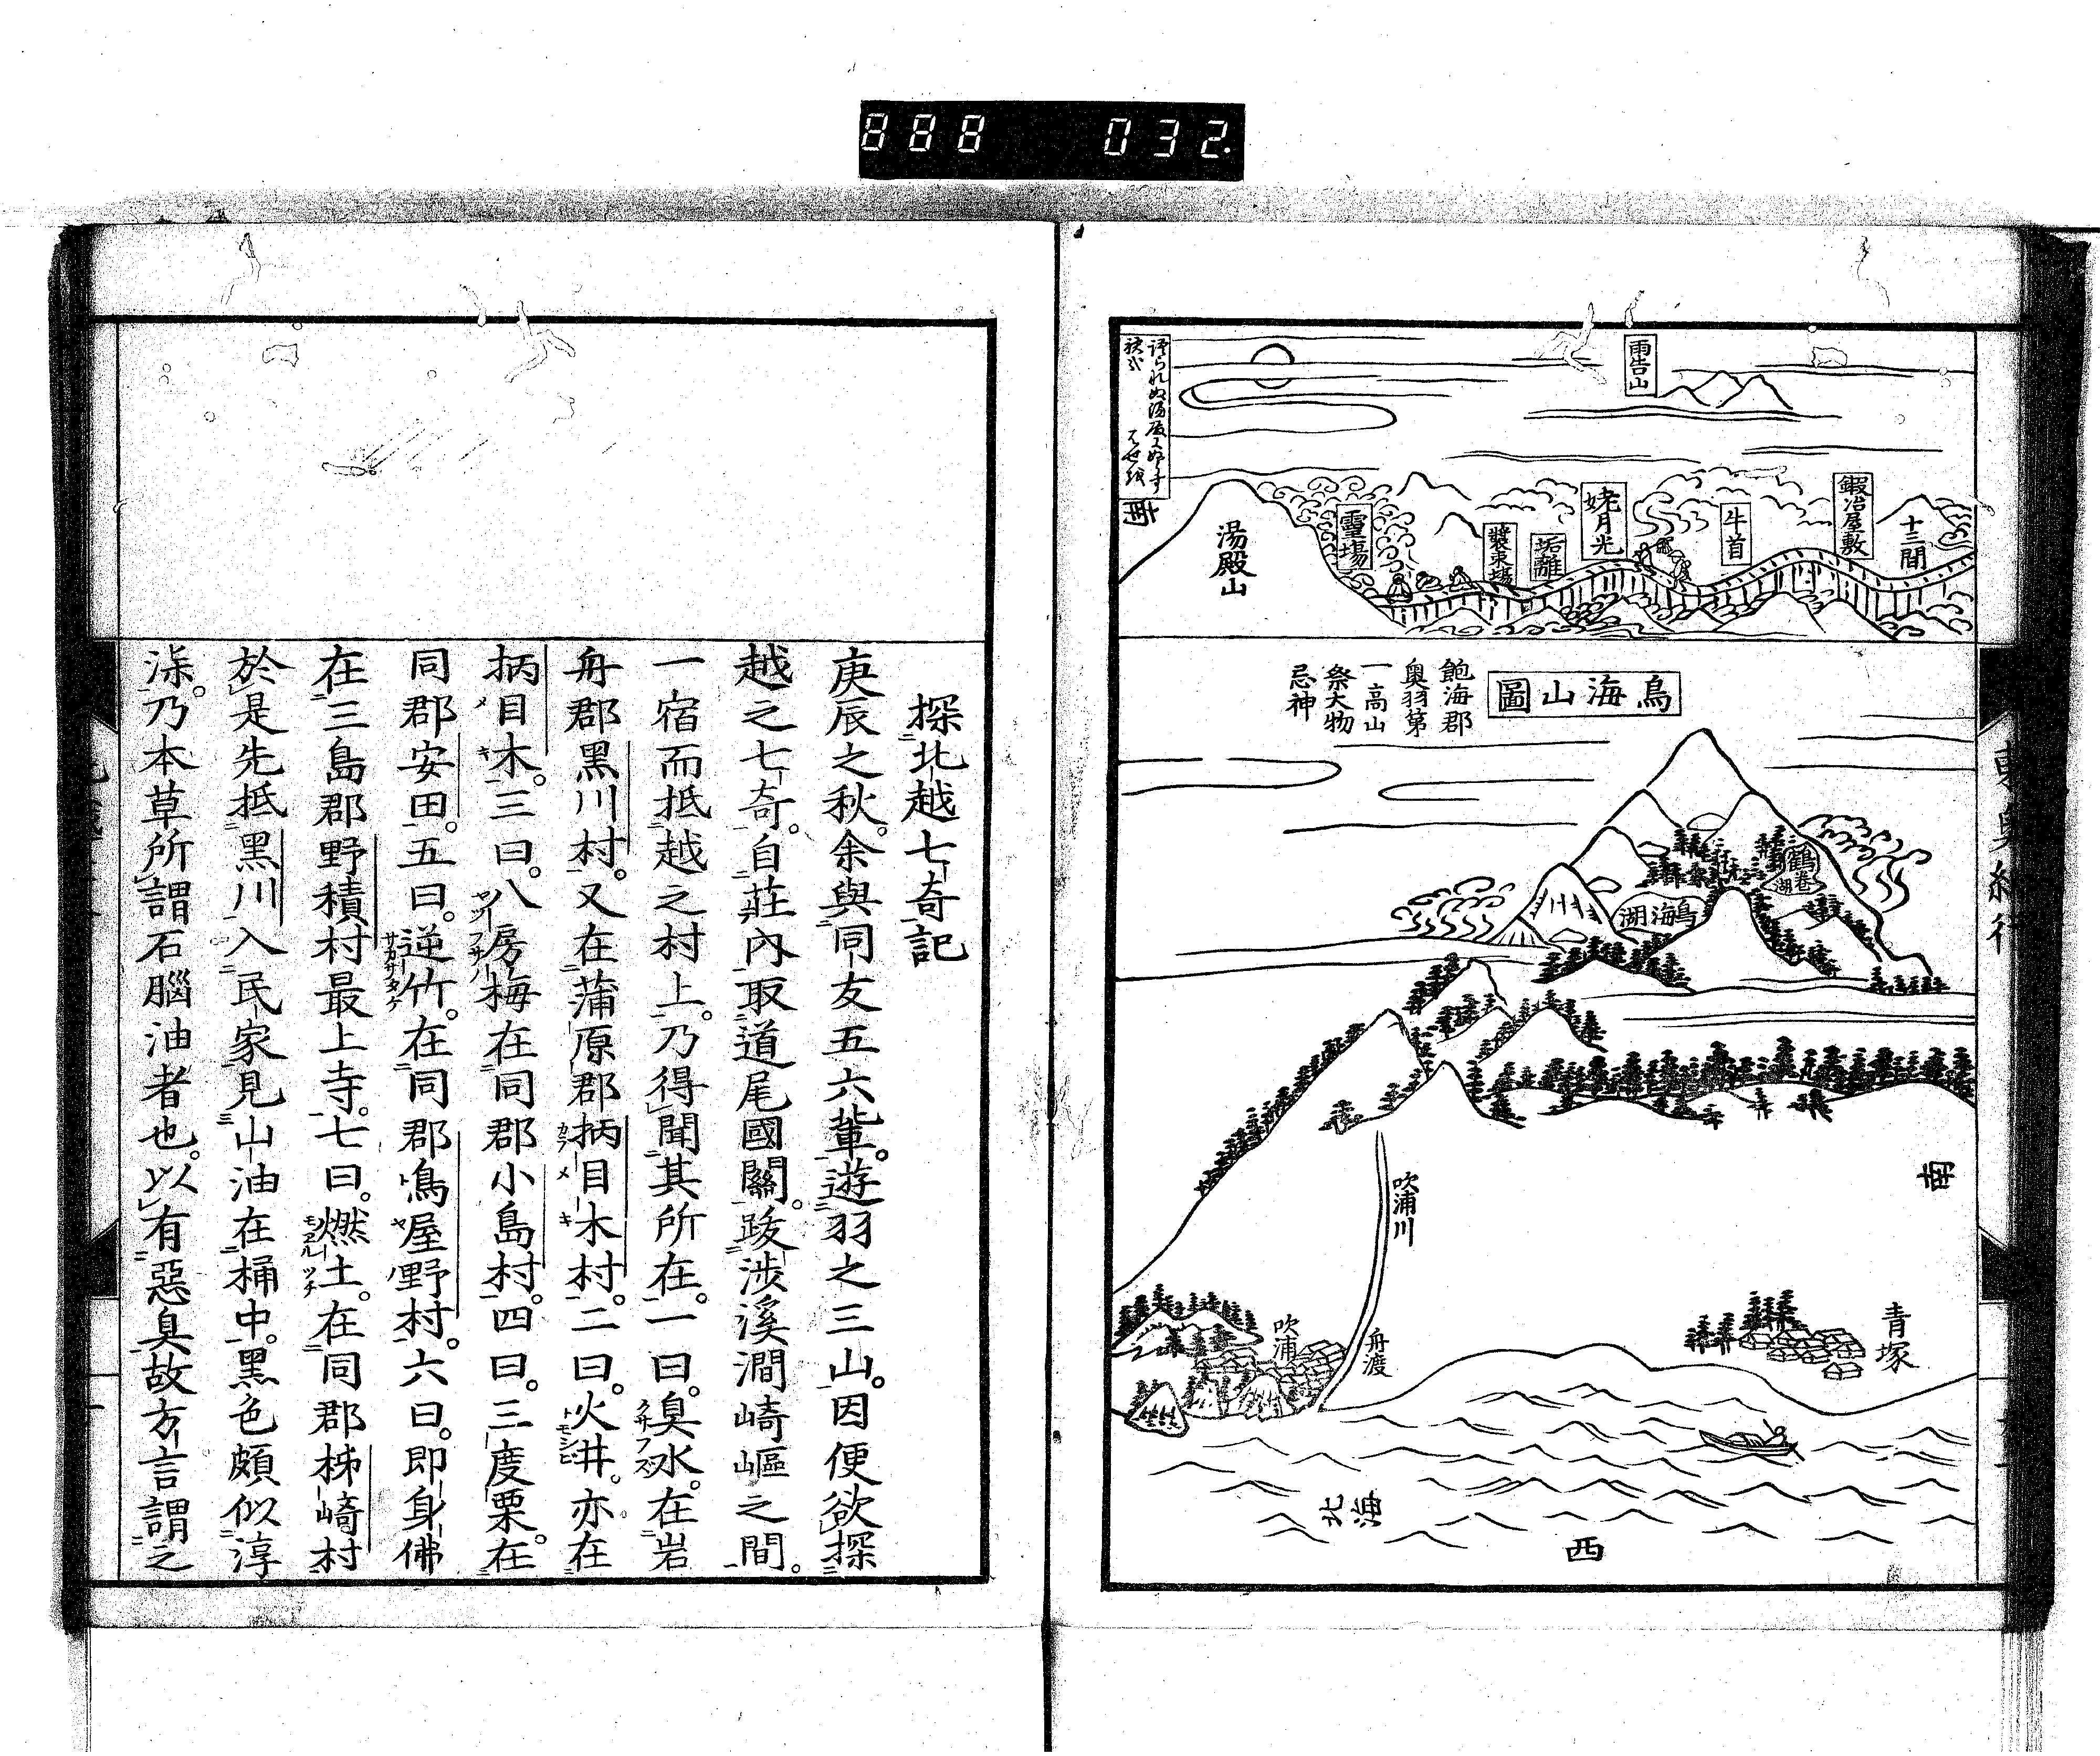 888 032.
雨告山
鍜冶屋敷
十三間
牛首
姥月光
垢離
裝束場
霊場
湯殿山
南
語られぬ湯殿にぬらす
袂哉 はせを
鳥海山圖
飽海郡
奥羽第
一高山
祭大物
忌神
鶴巻湖
鳥海湖
吹浦川
南
青塚
舟渡
吹浦
北海
西
東奥紀行
探北越七奇記
庚辰之秋。余與同友五六輩。遊羽之三山。因便欲探
越之七奇。自莊內取道尾國關。跋涉溪澗崎嶇之間。
一宿而抵越之村上。乃得聞其所在。一曰。臭水。在岩
舟郡黑川村。又在蒲原郡柄目木村。二曰。火井。亦在
柄目木。三曰。八房梅在同郡小島村。四曰。三度栗。在
同郡安田。五曰。逆竹。在同郡鳥屋野村。六曰。即身佛
在三島郡野積村最上寺。七曰。燃土。在同郡柹崎村
於是先抵黑川入民家見山油在桶中。黑色頗似淳
漆。乃本草所謂石腦油者也。以有惡臭故方言謂之